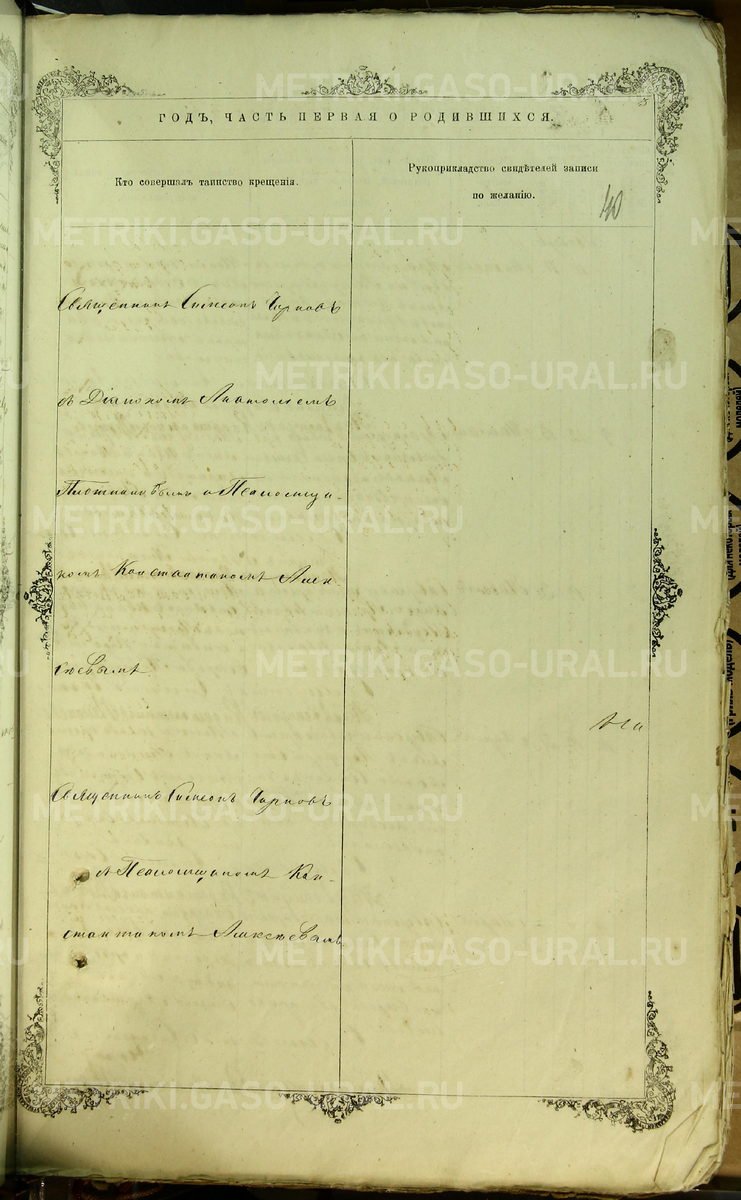 ГОДЪ, ЧАСТЬ ПЕРВАЯ О РОДИВШИХСЯ.
Кто совершалъ таинство крещенія.
Рукоприкладство свидѣтелей записи
по желанію.
40
Священникъ Симеонъ Чирковъ
съ Діакономъ Анатоліемъ
и Псаломщи-
комъ Константиномъ Алек-
сѣевымъ
Священникъ Симеонъ Чирковъ
съ Псаломщикомъ Кон-
стантиномъ Алексѣевымъ
METRIKI.GASO-URAL.RU